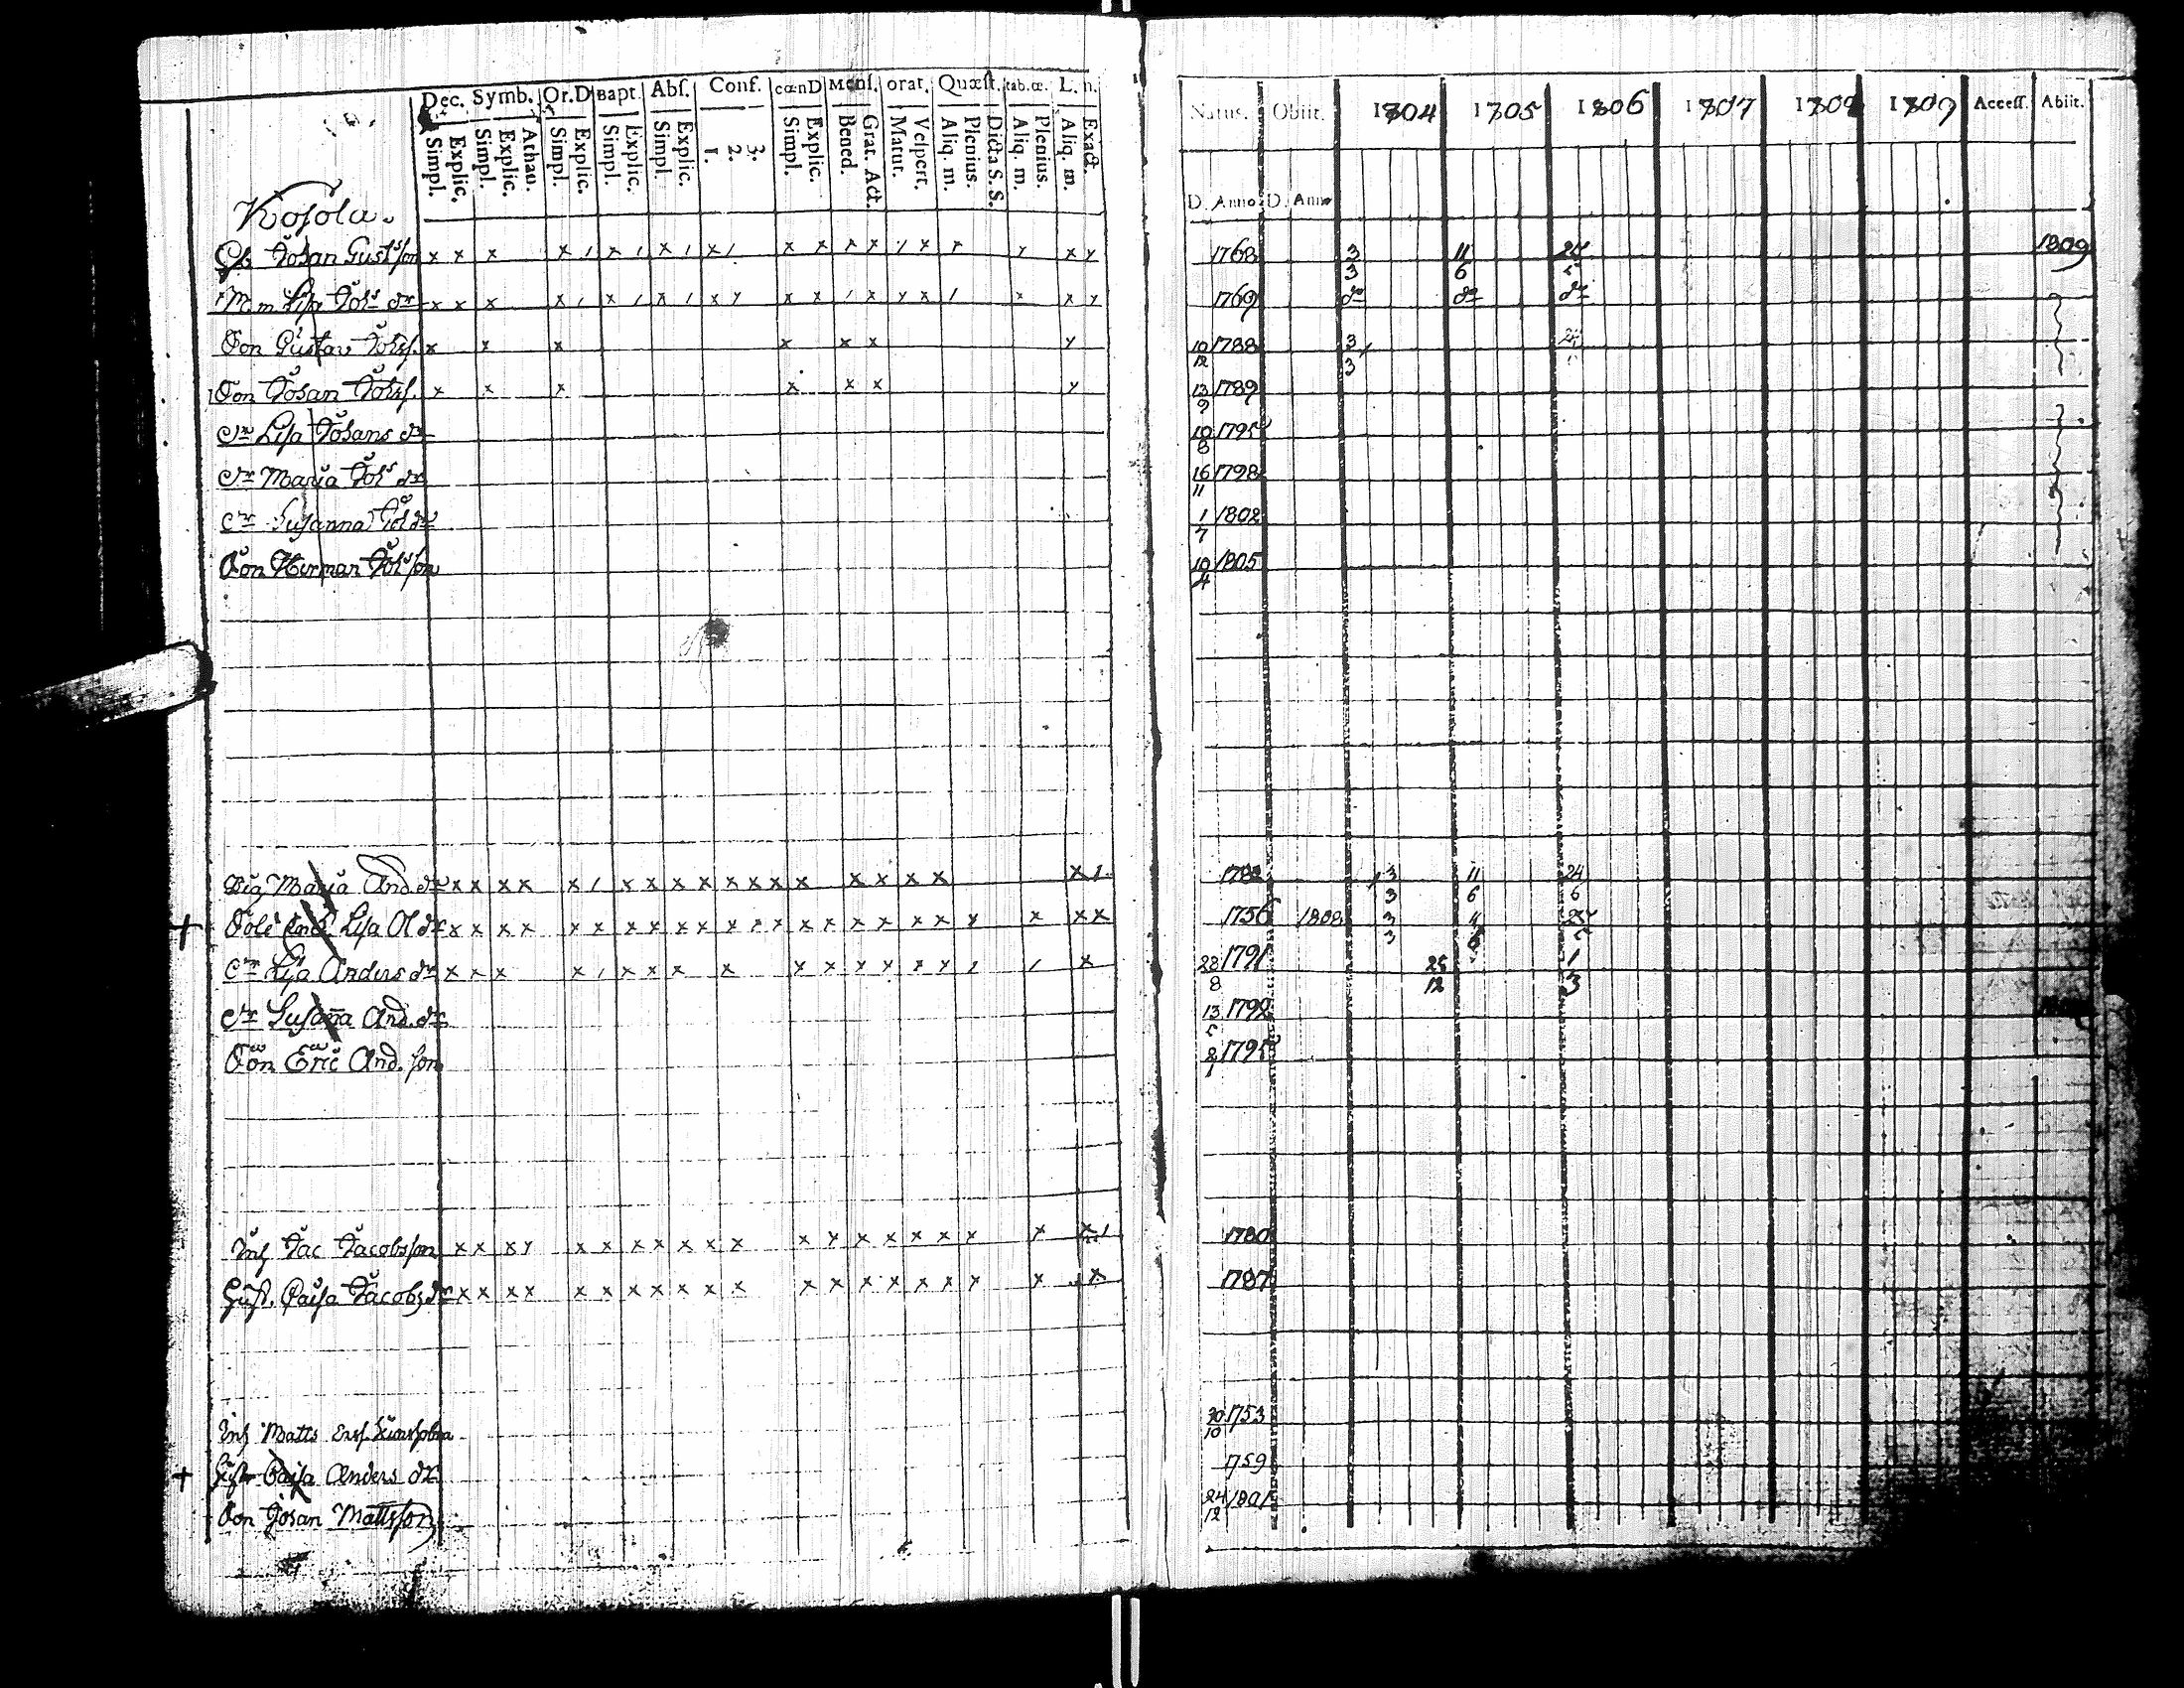 Dec. Symb. Or.D Bapt. Abſ. Conf. cœnD Menſ. orat. Quæſt. tab.œ. L. n.
Simpl. Explic. Simpl. Explic. Athan. Simpl. Explic. Simpl. Explic. Simpl. Explic. 1. 2. 3. Simpl. Explic. Bened. Grat. Act. Matut. Veſpert. Aliq. m. Plenius. Dicta S. S. Aliq. m. Plenius. Aliq. m. Exact.
Natus. Obiit. 1804 1805 1806 1807 1808 1809 Acceſſ. Abiit.
D. Anno D. Anno
Koſola.
Johan Guſtſſon x x x x / x / x / x / x x x x / x x x x 1768 3 3 11 6 25 5 1809
M.m. Liſa Joh dr x x x x / x / x / x x x x / x x / x x 1769 do do do
Son Guſtav Johsſ. x x x x x x x 10 12 1788 3 3
Son Johan Johsſ. x x x x x x x 13 9 1789
dr Liſa Johans dr 10 8 1795
dr Maria Joh dr 16 11 1798
dr Suſanna Joh dr 1 7 1802
Son Herman Joh ſon 10 4 1805
Pig Maria And. dr x x x x x / x x x x x x x x x x x x x / 1782 3 3 11 6 24 6
Liſa Ol dr x x x x x x x x x x x x x x x x x x x x x x x 1756 1808 3 3 4 6 25 5
dr Liſa Anders dr x x x x / x x x x x x x x x x / / x 28 8 1791 25 12 1 3
dr Suſana And. dr 13 5 1792
Son Eric And. ſon 1795
Inh Jac Jacobsſon x x x x x x x x x x x x x x x x x x x x / 1780
Huſt. Caiſa Jacobs dr x x x x x x x x x x x x x x x x x x x x 1787
Inh Matts 30 10 1753
Caiſa Anders dr 1759
Son Johan Mattsſon 24 12 1801